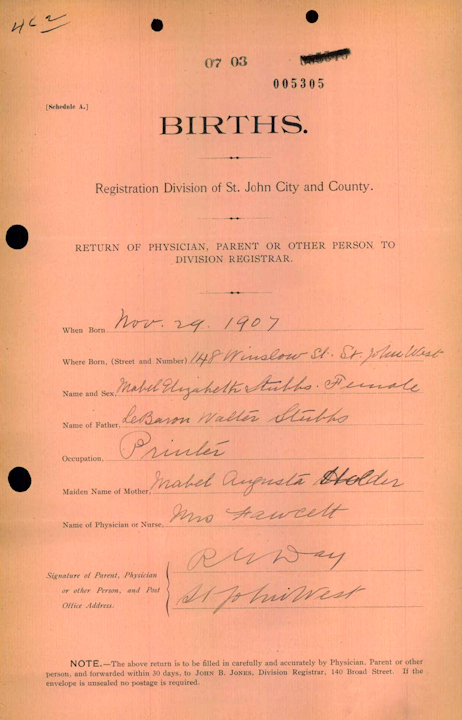 462
07 03
005305
[Schedule A.]
BIRTHS.
Registration Division of St. John City and County.
RETURN OF PHYSICIAN, PARENT OR OTHER PERSON TO
DIVISION REGISTRAR.
When Born Nov. 29. 1907
Where Born, (Street and Number) 148 Winslow St. St John West
Name and Sex, Mabel Elizabeth Stubbs. Female
Name of Father, LeBaron Walter Stubbs
Occupation, Printer
Maiden Name of Mother, Mabel Augusta Holder
Name of Physician or Nurse, Mrs Fawcett
Signature of Parent, Physician
or other Person, and Post
Office Address.
Day
St John West
NOTE.—The above return is to be filled in carefully and accurately by Physician, Parent or other
person, and forwarded within 30 days, to JOHN B. JONES, Division Registrar, 140 Broad Street. If the
envelope is unsealed no postage is required.